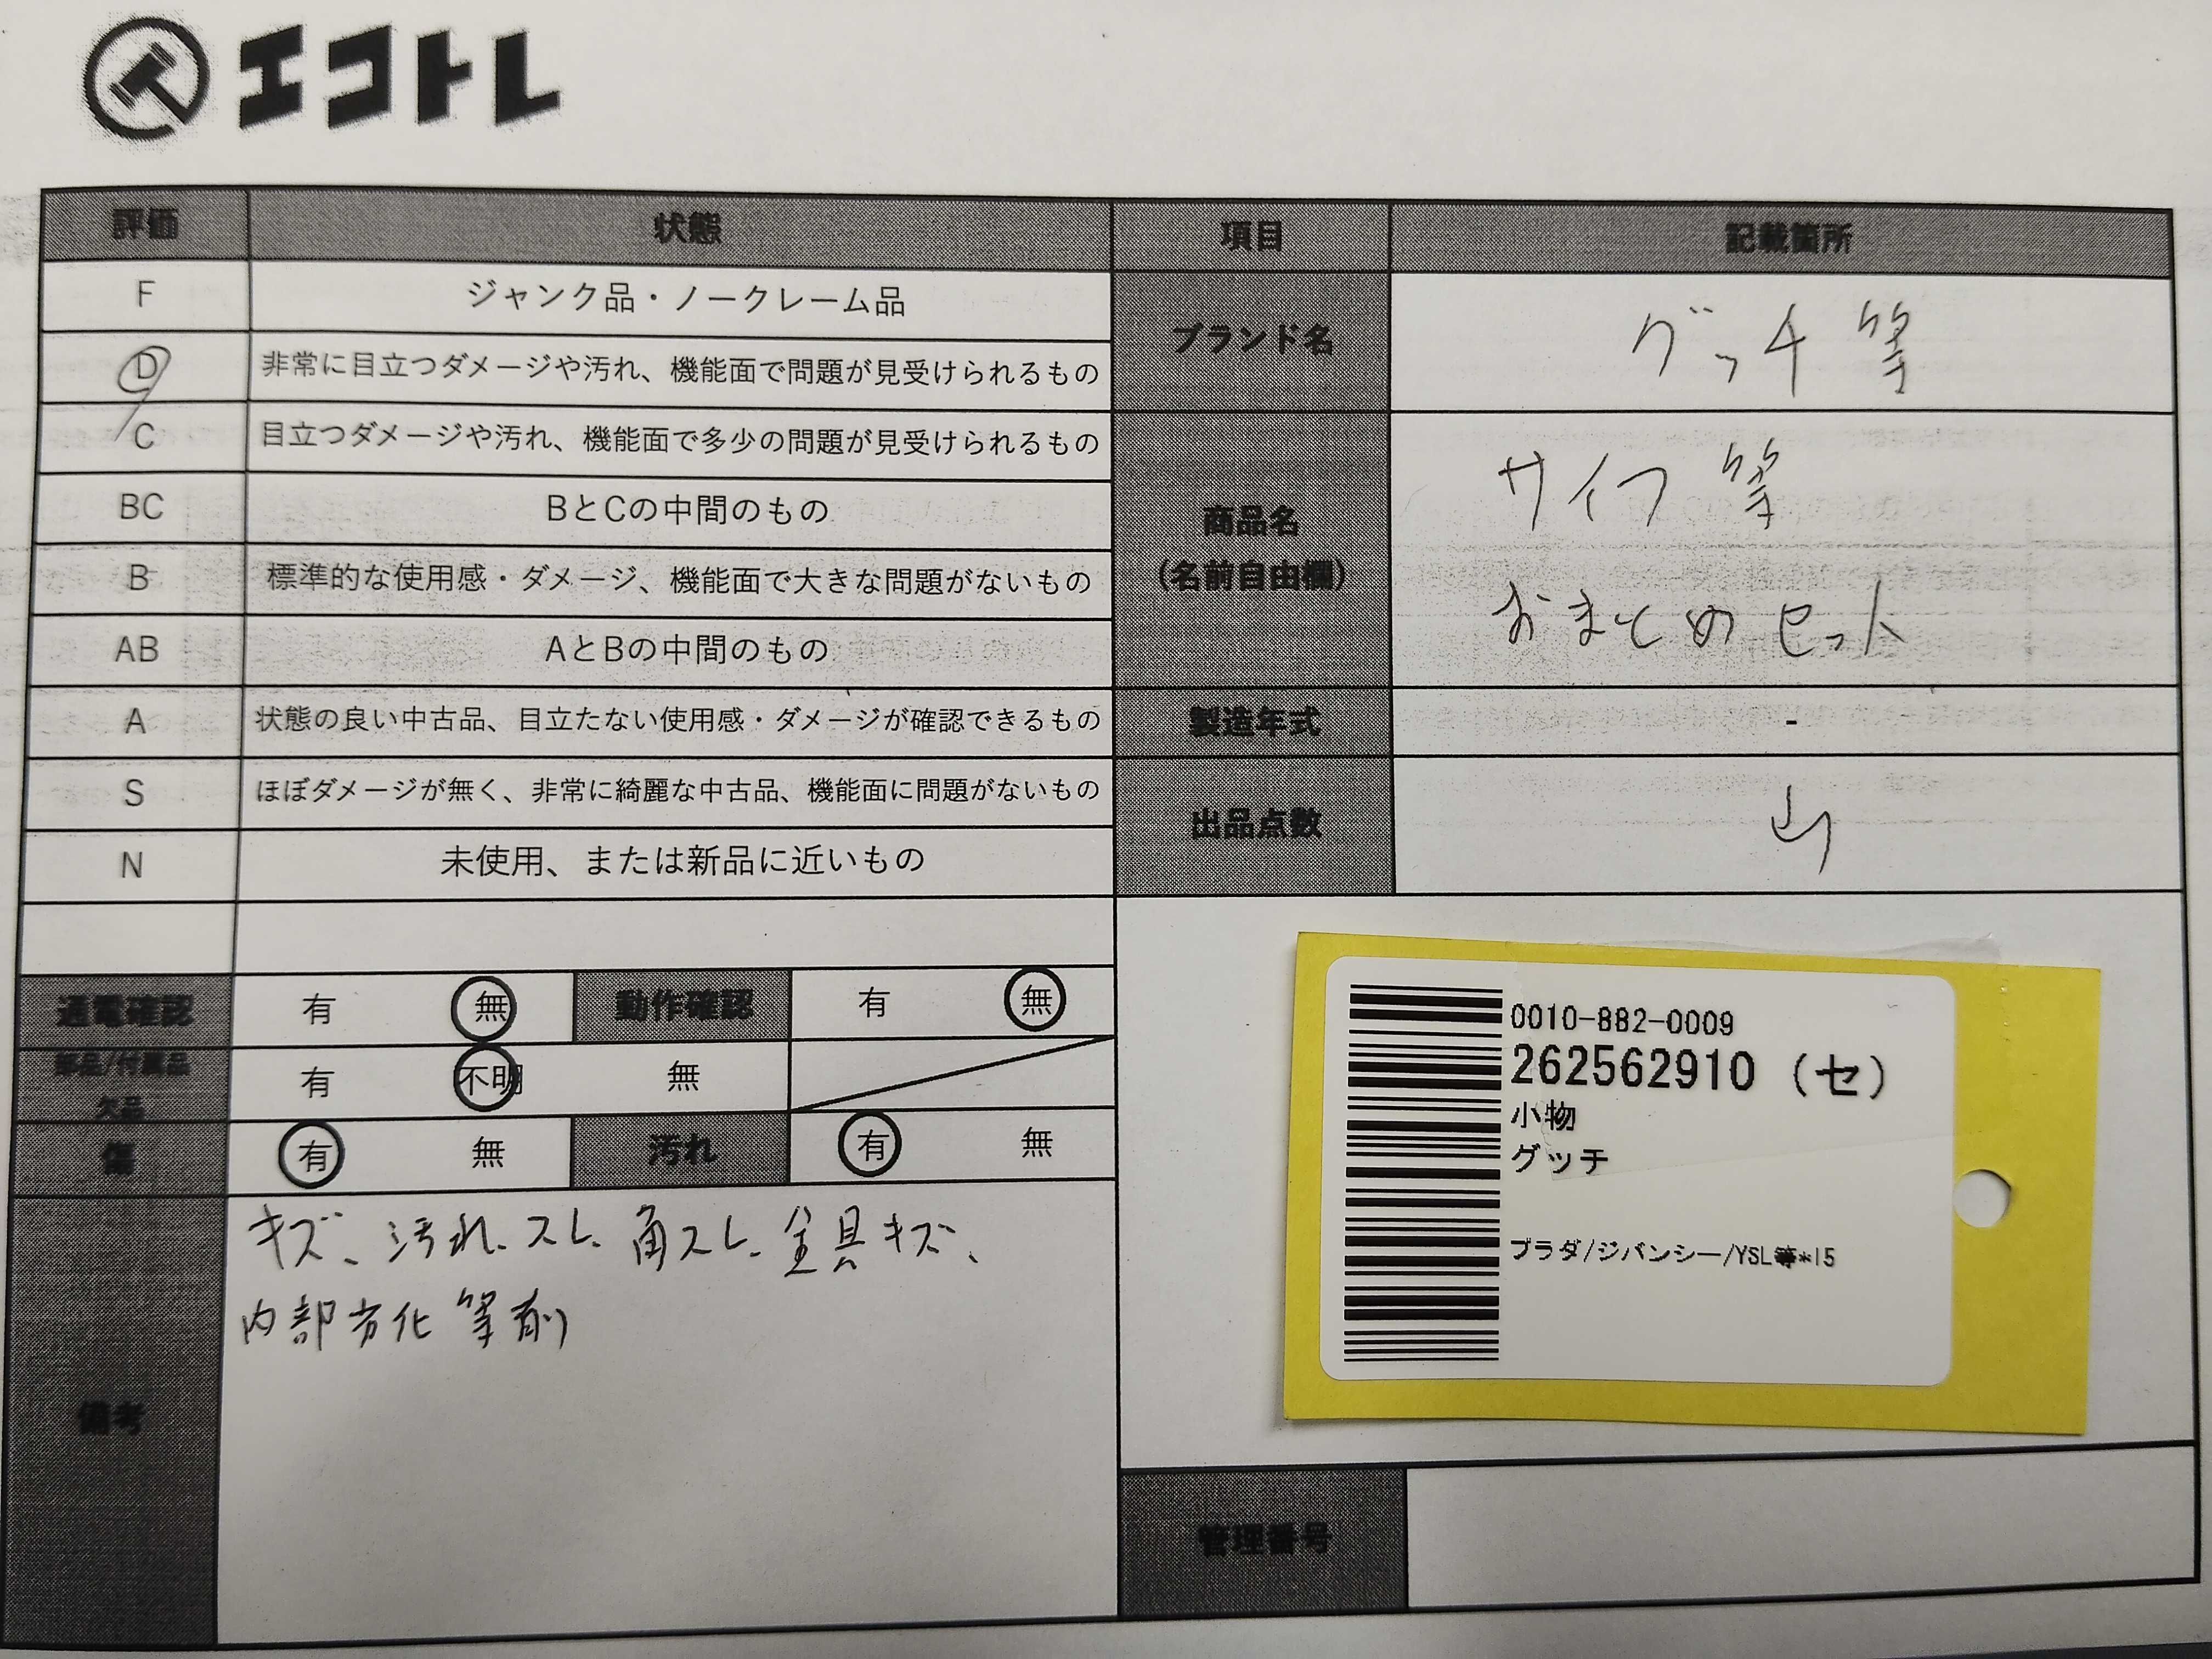 エコトレ
評価 状態 項目 記載箇所
F ジャンク品・ノークレーム品
D 非常に目立つダメージや汚れ、機能面で問題が見受けられるもの
C 目立つダメージや汚れ、機能面で多少の問題が見受けられるもの
BC BとCの中間のもの
B 標準的な使用感・ダメージ、機能面で大きな問題がないもの
AB AとBの中間のもの
A 状態の良い中古品、目立たない使用感・ダメージが確認できるもの
S ほぼダメージが無く、非常に綺麗な中古品、機能面に問題がないもの
N 未使用、または新品に近いもの
ブランド名 グッチ等
商品名
(名前自由欄)
サイフ等
おまとめセット
製造年式 -
出品点数
通電確認 有 無 動作確認 有 無
部品/付属品
欠品
有 不明 無
傷 有 無 汚れ 有 無
備考
キズ、汚れ、スレ、角スレ、金具キズ、
内部劣化等有り
0010-882-0009
262562910 (セ)
小物
グッチ
プラダ/ジバンシー/YSL等*15
管理番号